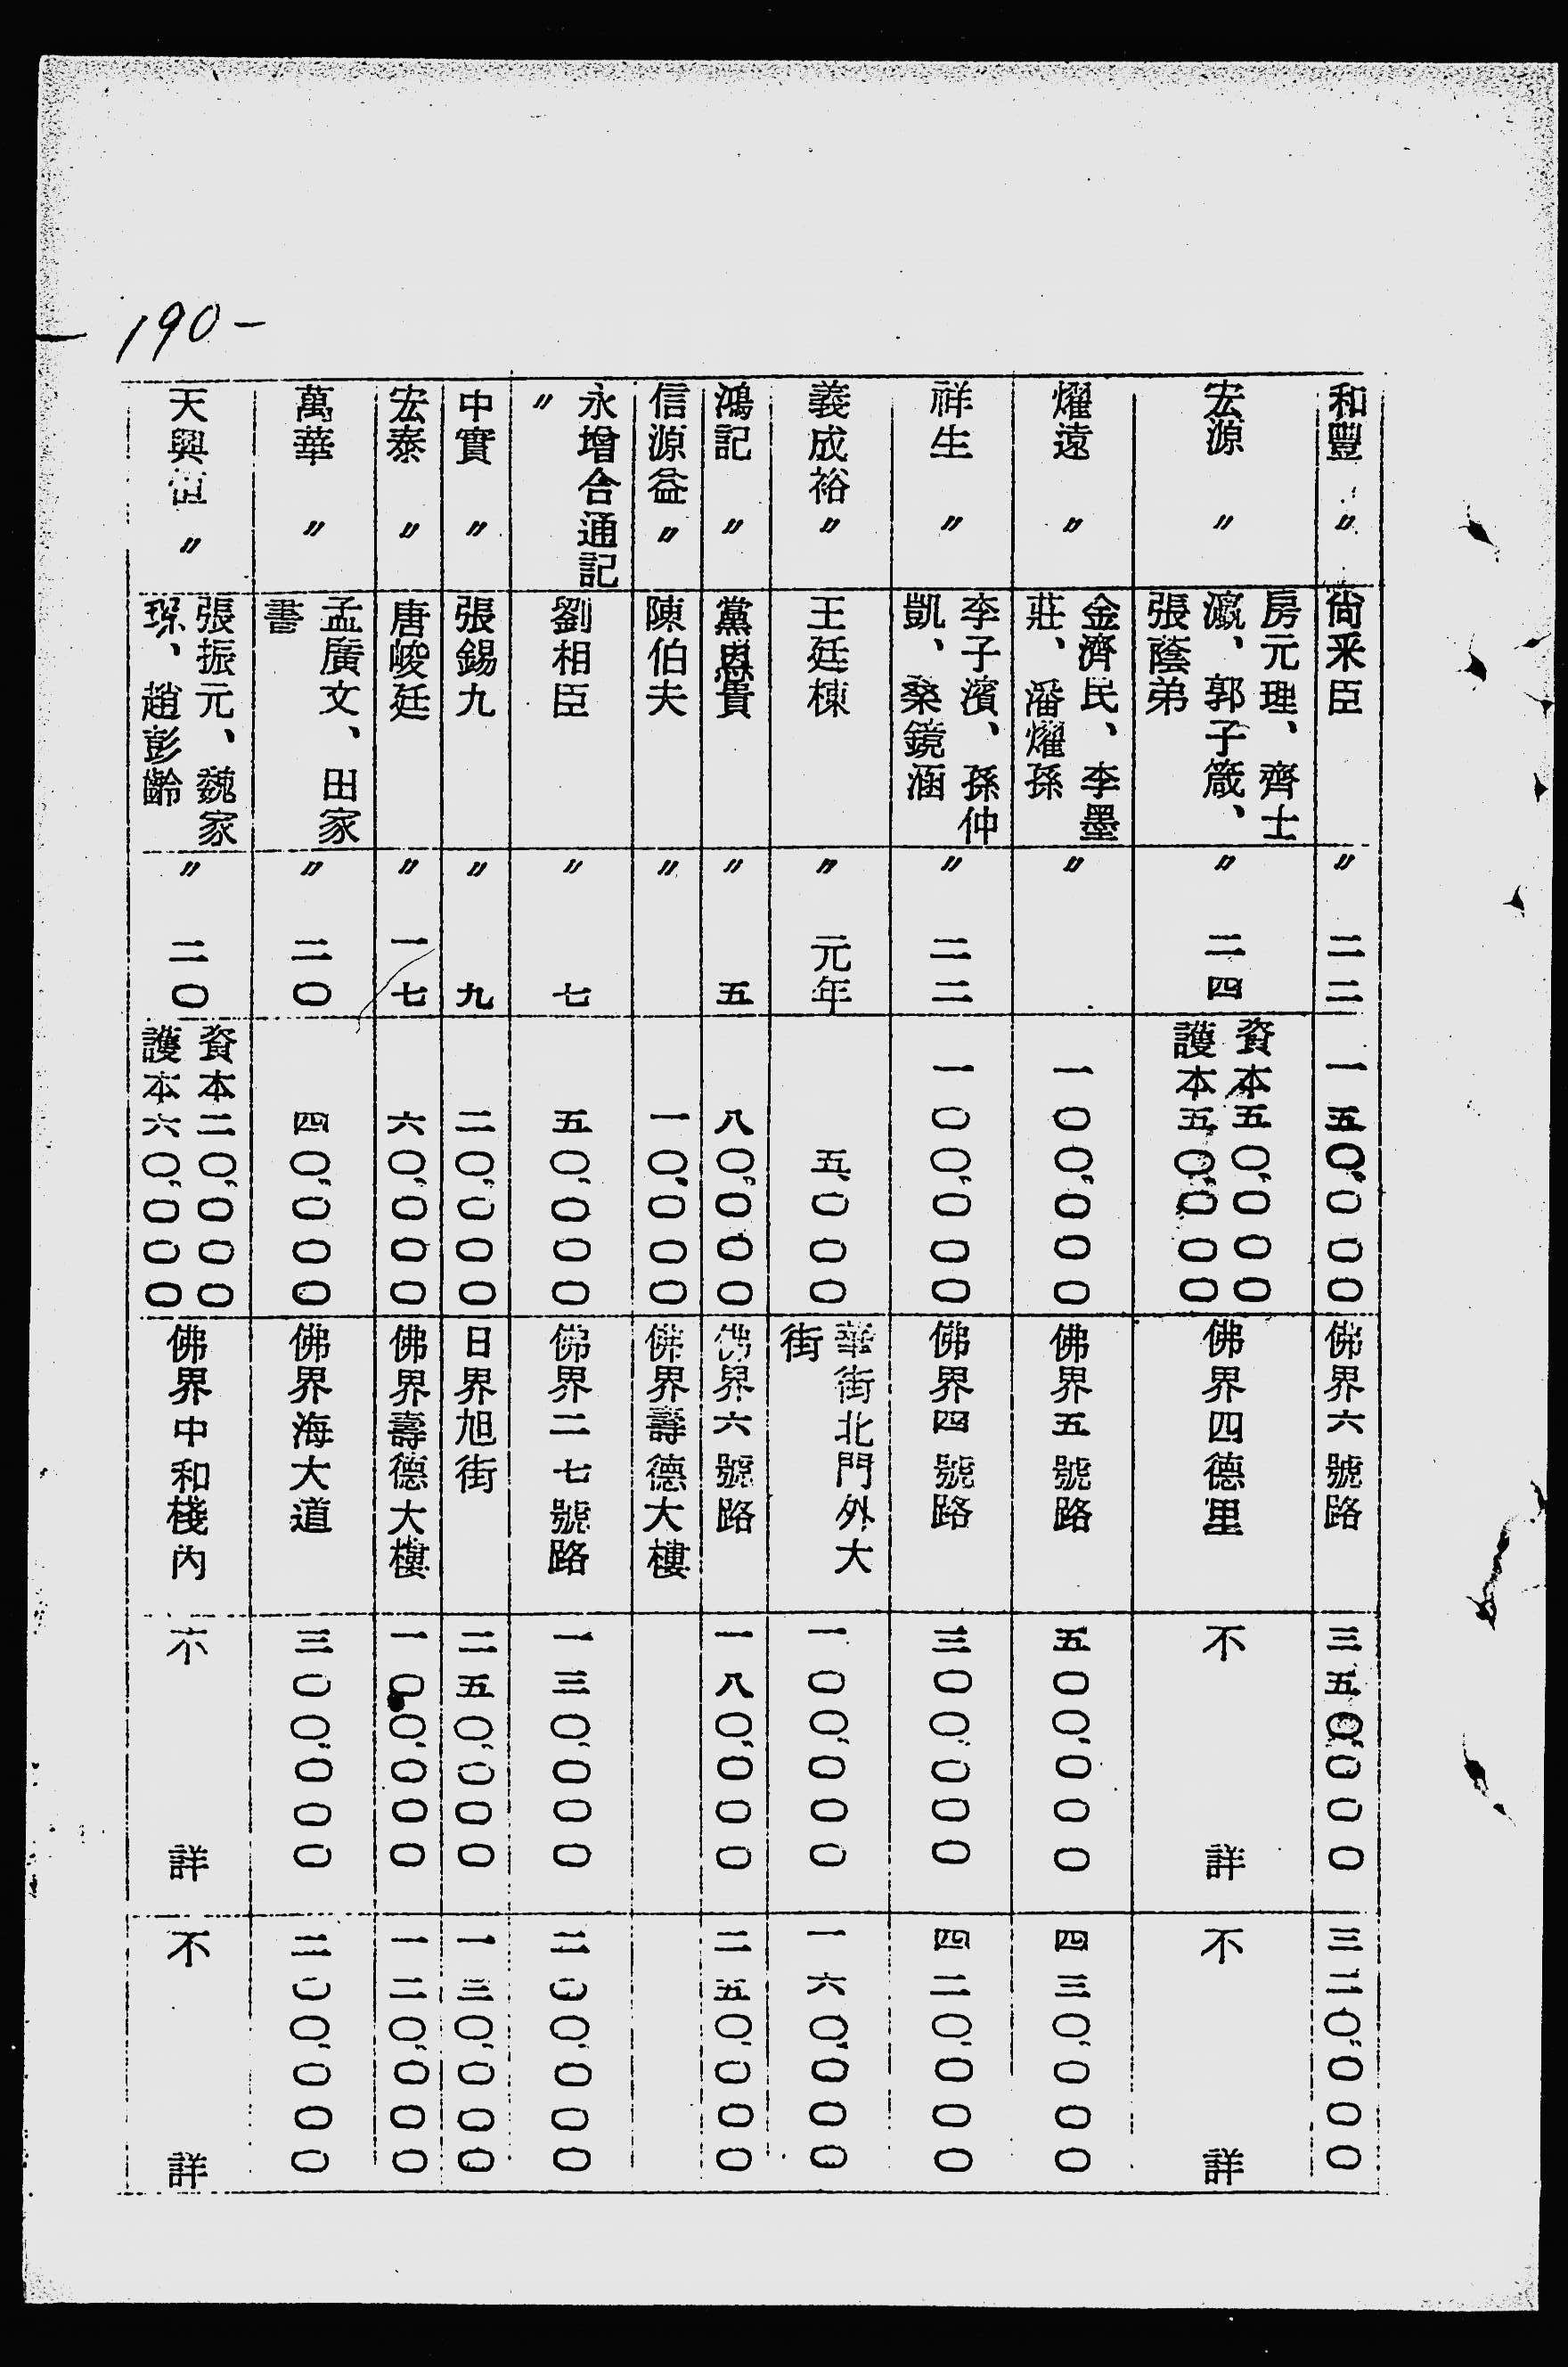 190-
和豐 〃 尙釆臣 〃 二二 一五〇、〇〇〇 佛界六號路 三五〇、〇〇〇 三二〇、〇〇〇
宏源 〃 房元理、齊士瀛、郭子箴、張蔭弟 〃 二四 資本五〇、〇〇〇 護本五〇、〇〇〇 佛界四德里 不詳 不詳
燿遠 〃 金濟民、李墨莊、潘燿孫 〃 一〇〇、〇〇〇 佛界五號路 五〇〇、〇〇〇 四三〇、〇〇〇
祥生 〃 李子濱、孫仲凱、桑鏡涵 〃 二二 一〇〇、〇〇〇 佛界四號路 三〇〇、〇〇〇 四二〇、〇〇〇
義成裕 〃 王廷棟 〃 元年 五、〇〇〇 華街北門外大街 一〇〇、〇〇〇 一六〇、〇〇〇
鴻記 〃 黨恩貴 〃 五 八〇、〇〇〇 佛界六號路 一八〇、〇〇〇 二五〇、〇〇〇
信源益 〃 陳伯夫 〃 一〇、〇〇〇 佛界壽德大樓
永增合通記 〃 劉相臣 〃 七 五〇、〇〇〇 佛界二七號路 一三〇、〇〇〇 二〇〇、〇〇〇
中實 〃 張錫九 〃 九 二〇、〇〇〇 日界旭街 二五〇、〇〇〇 一三〇、〇〇〇
宏泰 〃 唐峻廷 〃 一七 六〇、〇〇〇 佛界壽德大樓 一〇〇、〇〇〇 一二〇、〇〇〇
萬華 〃 孟廣文、田家書 〃 二〇 四〇、〇〇〇 佛界海大道 三〇〇、〇〇〇 二〇〇、〇〇〇
天興恒 〃 張振元、魏家琛、趙彭齡 〃 二〇 資本二〇、〇〇〇 護本六〇、〇〇〇 佛界中和棧內 不詳 不詳